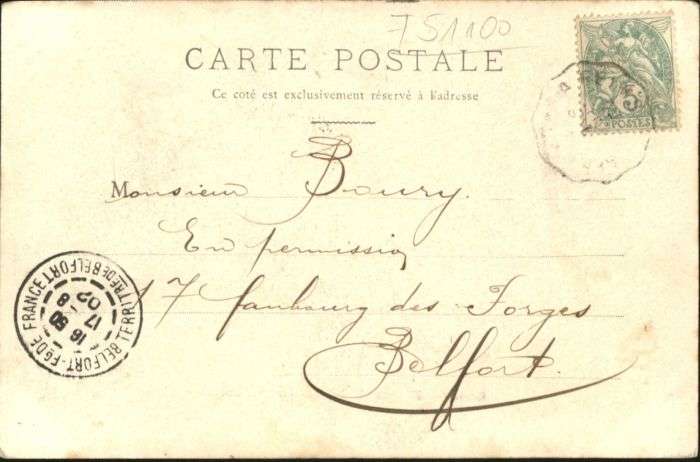 751100
CARTE POSTALE
Ce coté est exclusivement réservé à l'adresse
5
POSTES
Monsieur Boury.
En permission
17 faubourg des Forges
Belfort.
BELFORT-FG DE FRANCE
TERRITRE DE BELFORT
16 50
17
8
02